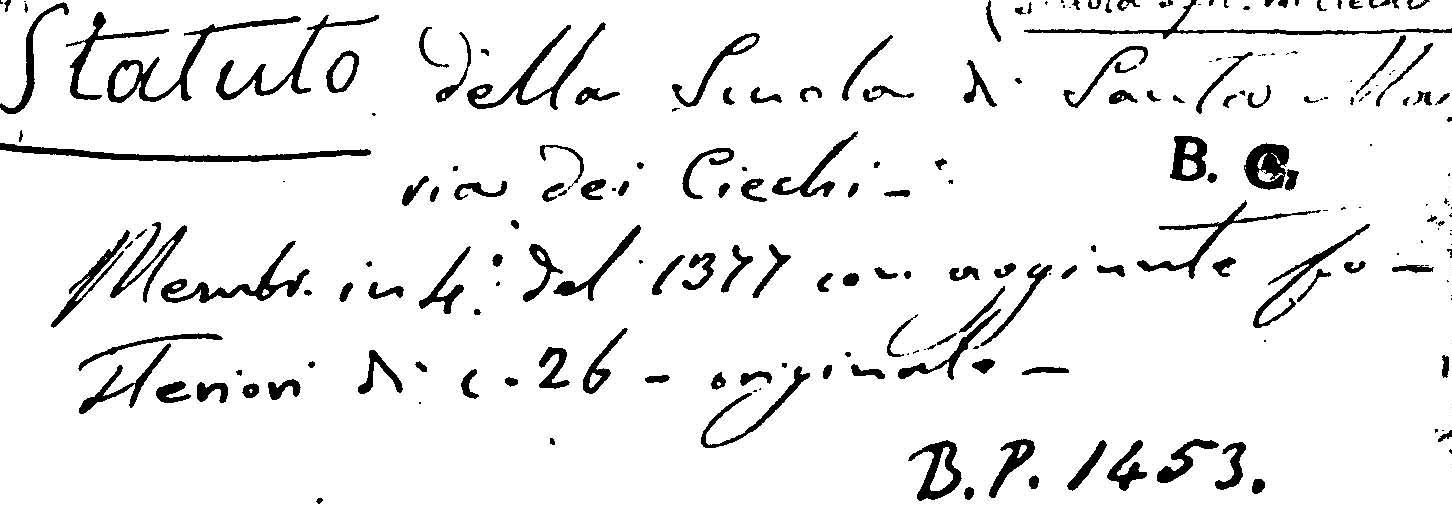 Statuto della Scuola di Santa Ma
ria dei Ciechi -
B. C.
Membr. in 4.º del 1377 con aggiunte po-
steriori di c. 26 - originale -
B.P. 1453.